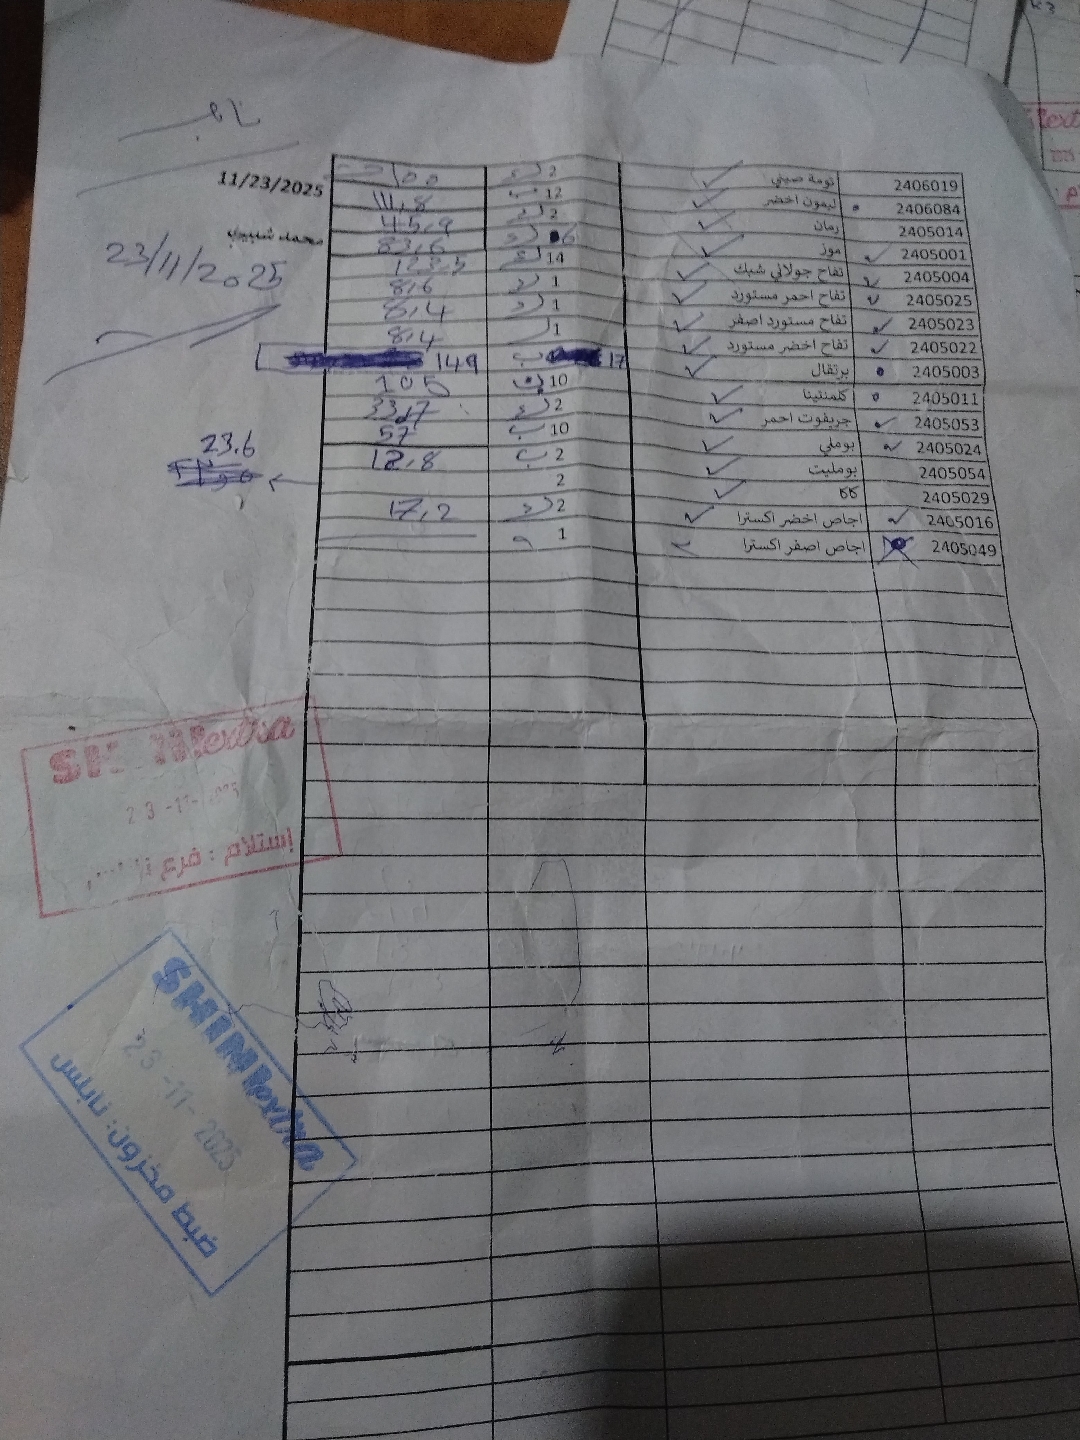 نابلس
11/23/2025
محمد شبيري
23/11/2025
2406019 ثومة صيني 2
2406084 ليمون اخضر 12 ب 14,8
2405014 رمان 2 45,9
2405001 موز 6 83,6
2405004 تفاح جولاني شبك 14
2405025 تفاح احمر مستورد 1 8,6
2405023 تفاح مستورد اصفر 1 8,4
2405022 تفاح اخضر مستورد 1 8,4
2405003 برتقال 17 ب 149
2405011 كلمنتينا 10 ب 105
2405053 جريفوت احمر 2 33,7
2405024 بوملي 10 ب 57
2405054 بومليت 2 ب 12,8
2405029 كاكا 2 23.6
2405016 اجاص اخضر اكسترا 2 17,2
2405049 اجاص اصفر اكسترا 1
23 -11- 2025
إستلام : فرع
SHINI extra
23 -11- 2025
ضبط مخزون: نابلس